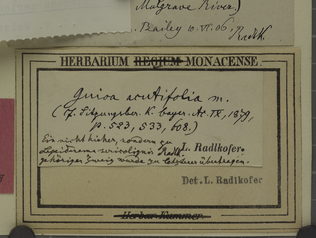 Mulgrave River)
Bailey 10.VI.06, Radlk.
HERBARIUM REGIUM MONACENSE
Guioa acutifolia m.
(cf. Sitzungsber. K. bayer. Ac. IX, 1879,
p. 523, 533, 608.)
Ein nicht hieher, sondern zu
Lepiderema sericolignis Radlk.
gehöriger Zweig wurde zu letzterer übertragen.
L. Radlkofer.
Det. L. Radlkofer
Herbar. Kummer.